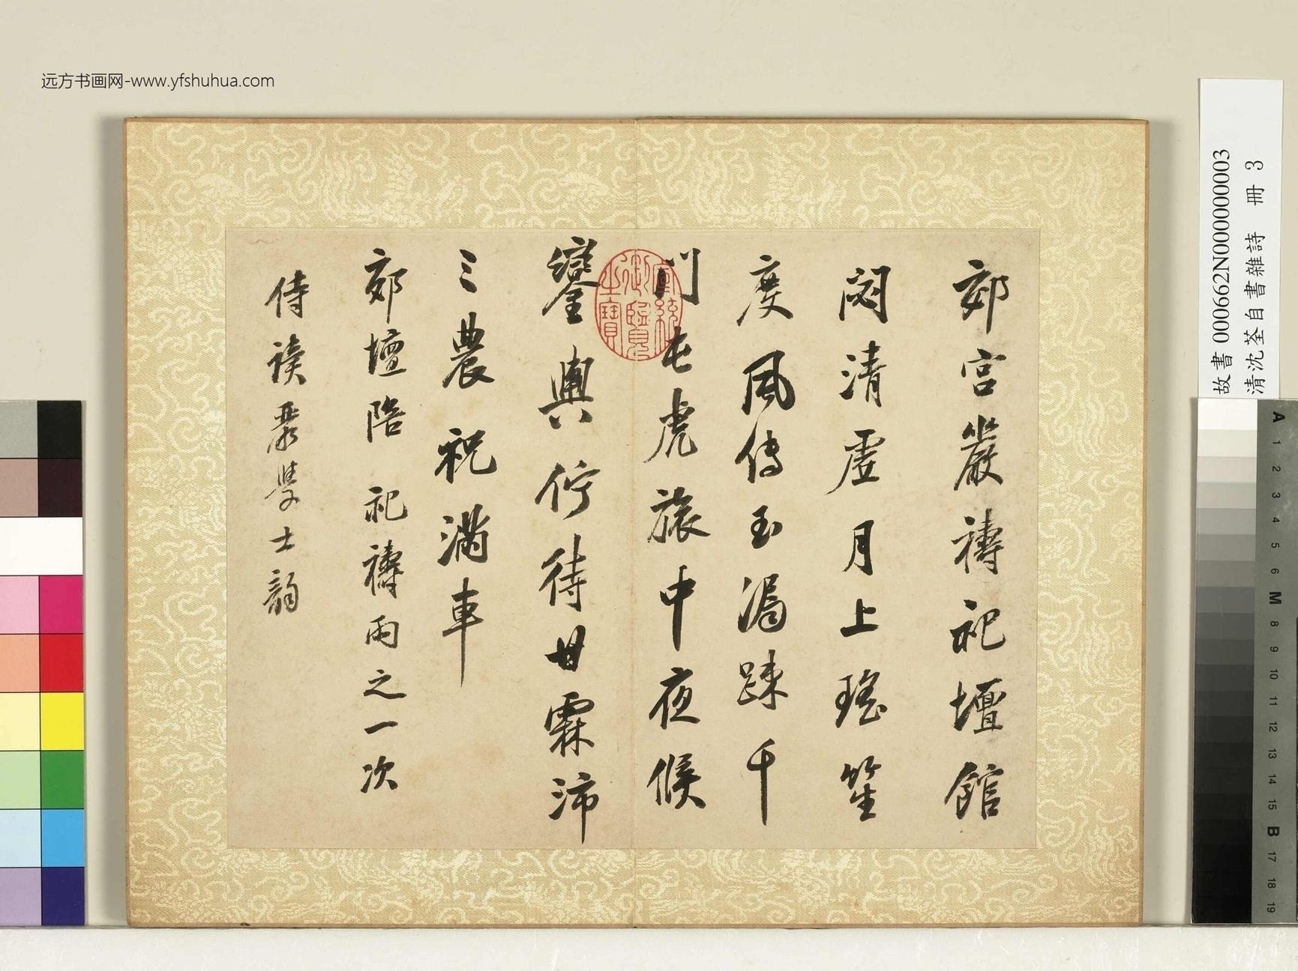 远方书画网-www.yfshuhua.com
郊宮嚴禱祀壇館
閟清虛月上瑤笙
度風傳玉漏踈千
門屯虎旅中夜候
鑾輿佇待甘霖沛
三農祝滿車
郊壇陪祀禱雨之一次
侍讀學士韻
宣統御覽之寶
故書 000662N000000003
清沈荃自書雜詩 冊 3
A 1 2 3 4 5 6 M 8 9 10 11 12 13 14 15 B 17 18 19